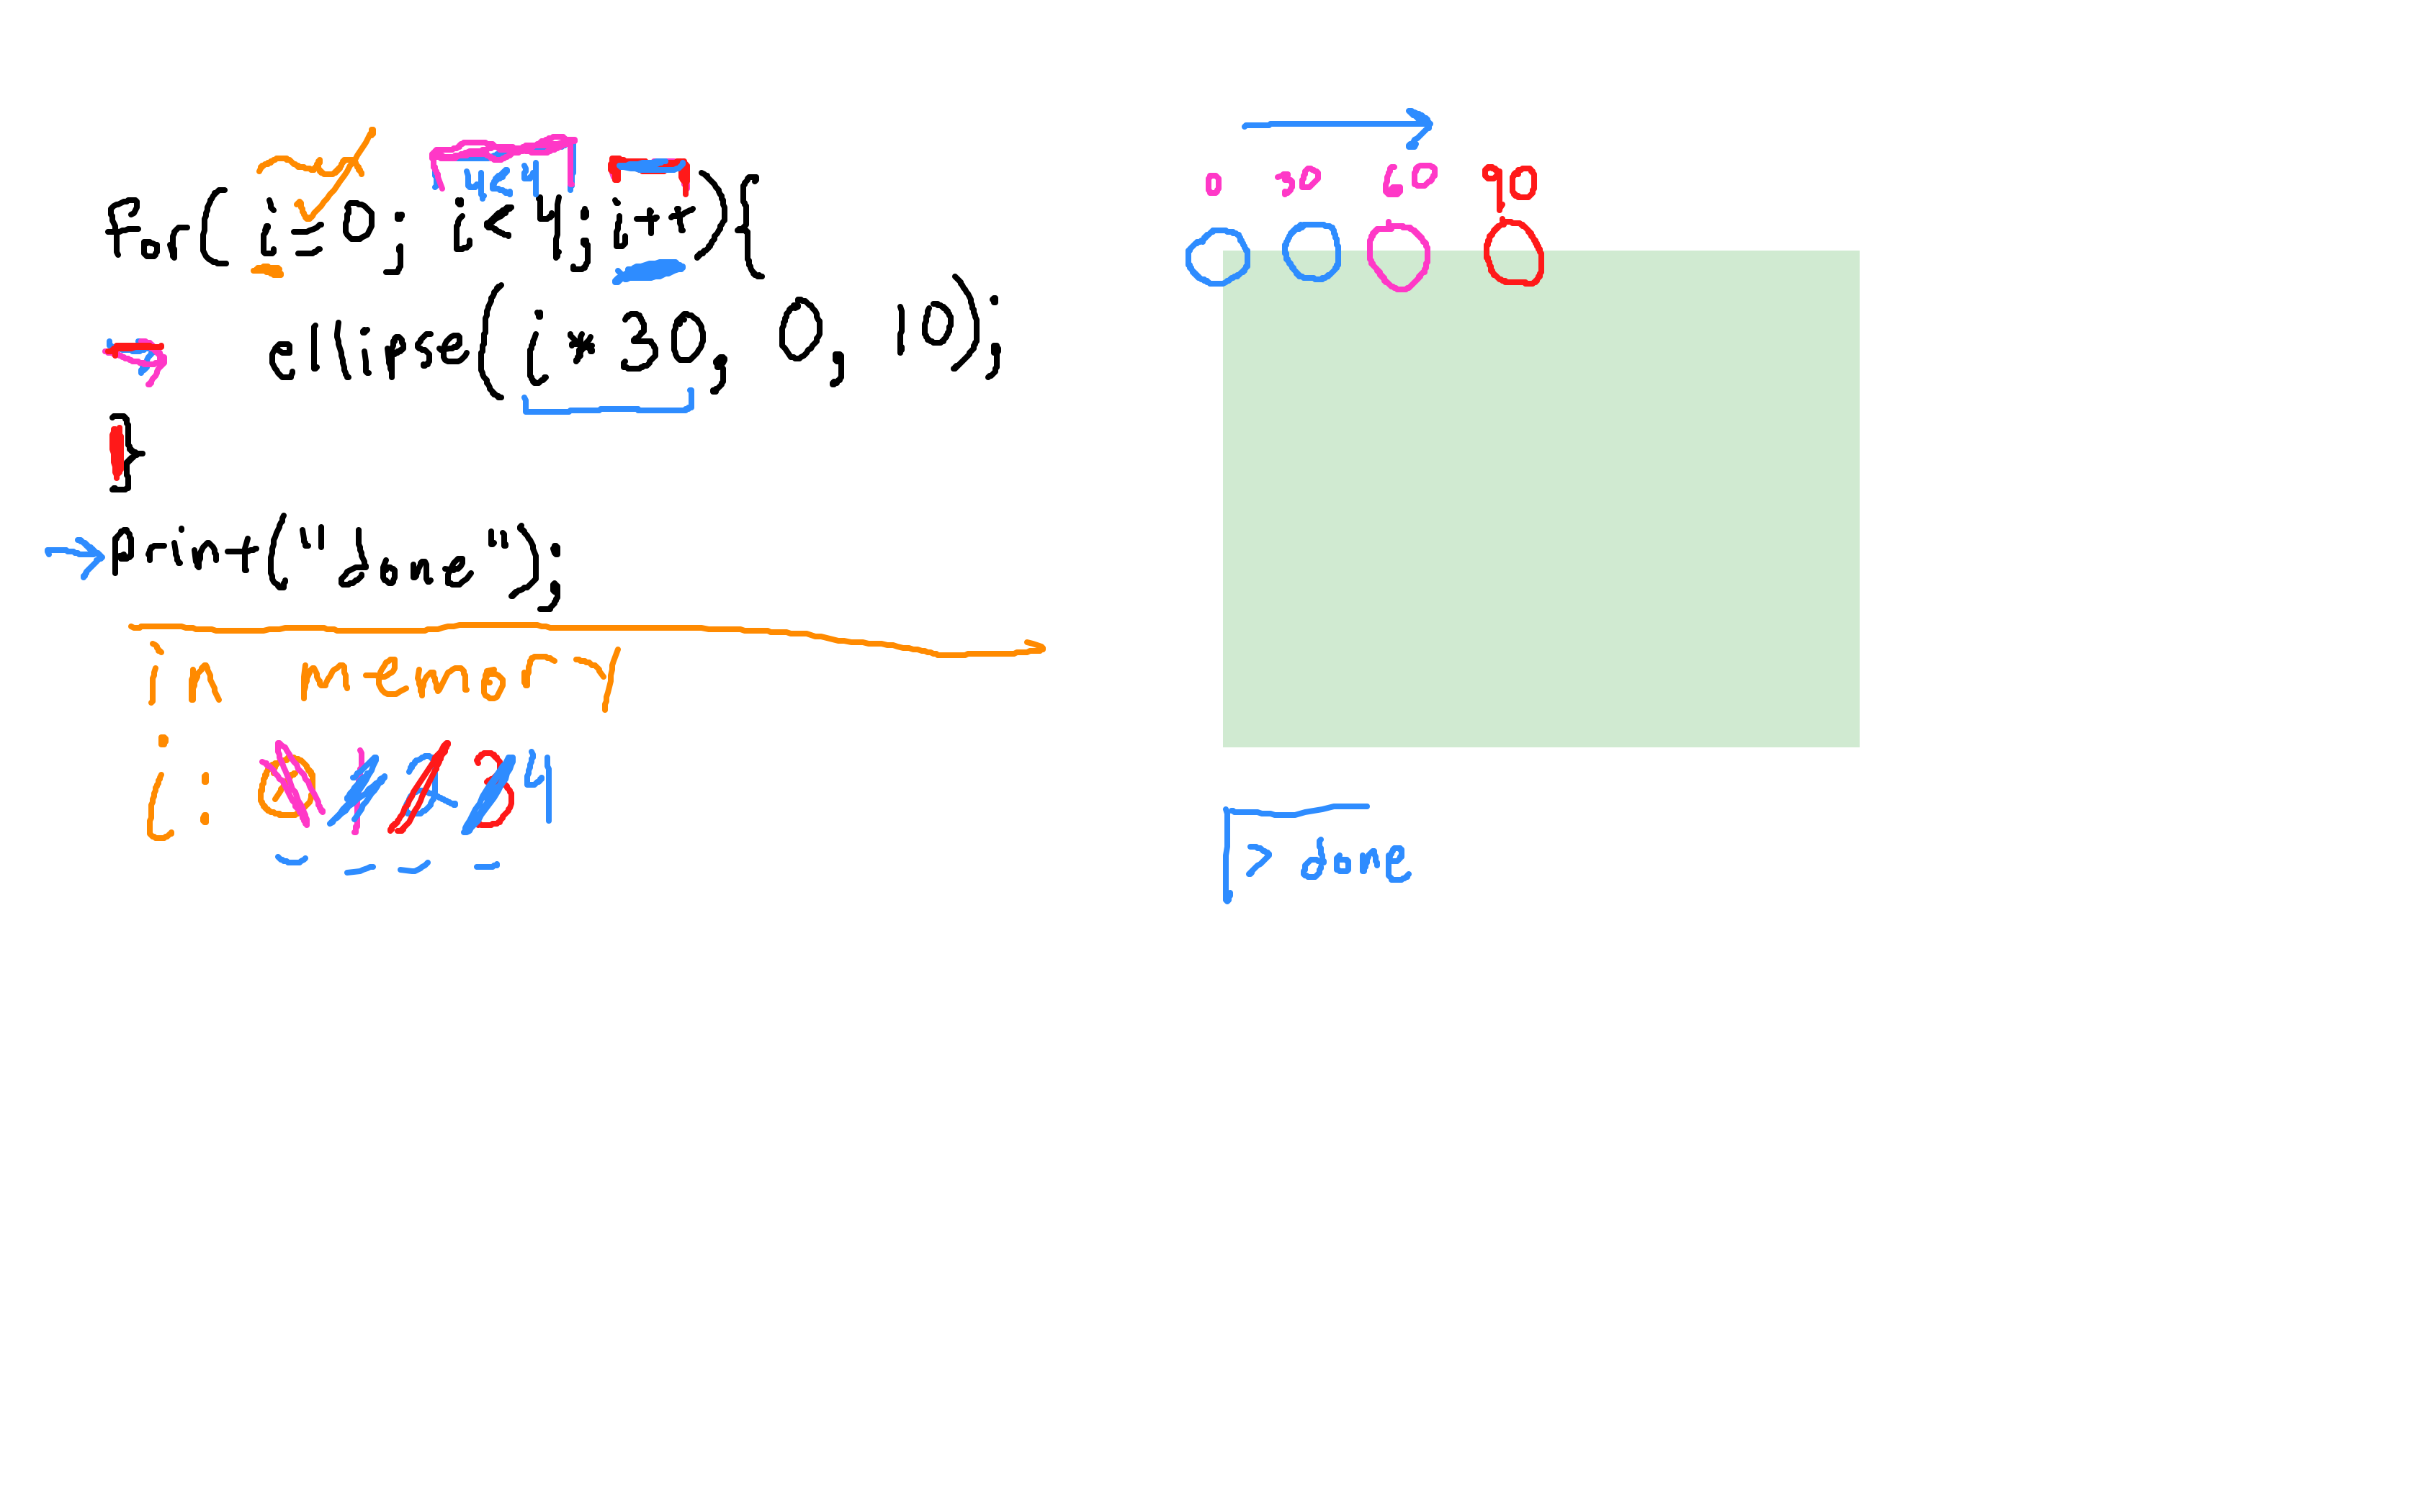 for(i=0; i<4;i++){
i<4
ellipse(i*30, 0, 10);
}
print("done");
in memory
i: 0 1 2 3 4
0 30 60 90
> done